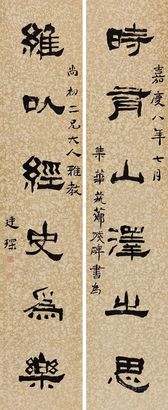 嘉慶八年七月
時有山澤之思
集華碑書為
尚初二兄大人雅教
維以經史爲樂